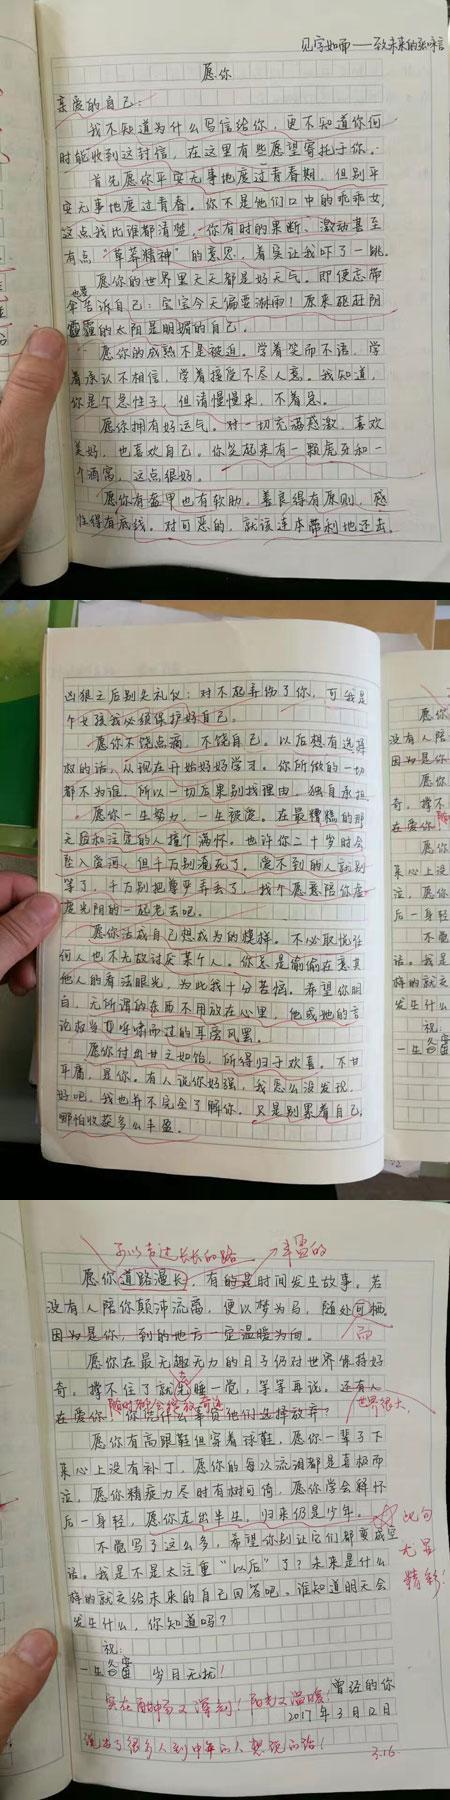 见字如面——致未来的
愿你
亲爱的自己：
我不知道为什么写信给你，更不知道你何
时能收到这封信，在这里有些愿望寄托于你。
首先愿你平安无事地度过青春期，但别平
安无事地度过青春。你不是他们口中的乖乖女，
这点我比谁都清楚，你有时的果断、激动甚至
有点“草莽精神”的意思，着实让我吓了一跳。
愿你的世界里天天都是好天气。即使忘带
伞也要告诉自己：宝宝今天偏要淋雨！原来驱赶阴
霾的太阳是明媚的自己。
愿你的成熟不是被迫。学着笑而不语，学
着承认不相信，学着接受不尽人意。我知道，
你是个急性子，但请慢慢来，不着急。
愿你拥有好运气。对一切充满感激，喜欢
美好，也喜欢自己。你笑起来有一颗虎牙和一
个酒窝，这点很好。
愿你有盔甲也有软肋。善良得有原则，感
性得有底线。对可恶的，就该连本带利地还击。
凶狠之后别失礼仪：对不起弄伤了你，可我是
个女孩我必须保护好自己。
愿你不饶点滴，不饶自己。以后想有选择
权的话，从现在开始好好学习。你所做的一切
都不为谁，所以一切后果别找理由，独自承担。
愿你一生努力，一生被爱。在最糟糕的那
天后和注定的人撞个满怀。也许你二十岁时会
坠入爱河，但千万别淹死了。爱不到的人就别
等了，千万别把尊严弄丢了，找个愿意陪你虚
度光阴的一起老去吧。
愿你活成自己想成为的模样。不必取悦任
何人也不无故讨厌某个人。你总是偷偷在意其
他人的看法眼光，为此我十分苦恼。希望你明
白，无所谓的东西不用放在心里，他或她的言
论权当更呼啸而过的耳旁风罢。
愿你付出甘之如饴，所得归于欢喜。不甘
平庸，是你。有人说你好强，我怎么没发现，
好吧，我也并不完全了解你。只是别累着自己，
哪怕收获多么丰盈。
可以有这长长的路
丰盈的
愿你道路漫长，有的是时间发生故事。若
没有人陪你颠沛流离，便以梦为马，随处可栖。
因为是你，到的地方一定温暖为向。
而
愿你在最无趣无力的日子仍对世界保持好
奇。撑不住了就先睡一觉，等等再说。还有人
去
随时都会接放奇迹
世界很大，
在爱你，你凭什么辜负他们选择放弃？
愿你有高跟鞋但穿着球鞋，愿你一辈子下
来心上没有补丁，愿你的每次流泪都是喜极而
泣，愿你精疲力尽时有树可倚，愿你学会释怀
后一身轻，愿你走出半生，归来仍是少年。
此句
尤显
精彩！
不觉写了这么多，希望你别让它们都变成空
话。我是不是太注重“以后”了？未来是什么
样的就交给未来的自己回答吧。谁知道明天会
发生什么，你知道吗？
祝：
一生备蕾 岁月无扰！
曾经的你
实在酣畅又深刻！阳光又温暖！
2017年3月12日
说出了很多人到中年的人想说的话！
3.16